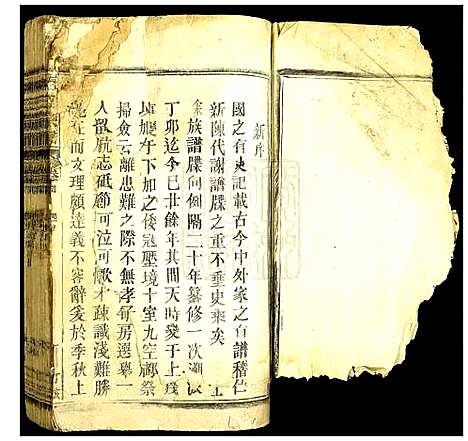 新序
國之有史記載古今中外家之有譜稽仁
新陳代謝譜牒之重不亜史乘矣
族譜牒向例隔二十年纂修一次
丁卯迄今已廿餘年其間天時變于上
於下加之倭冠壓境十室九空祠祭
掃僉云離患難之際不無孝子房選舉一
人砥節可泣可 才疎識淺難勝
而文理頗達義不容辭爰於季秋上